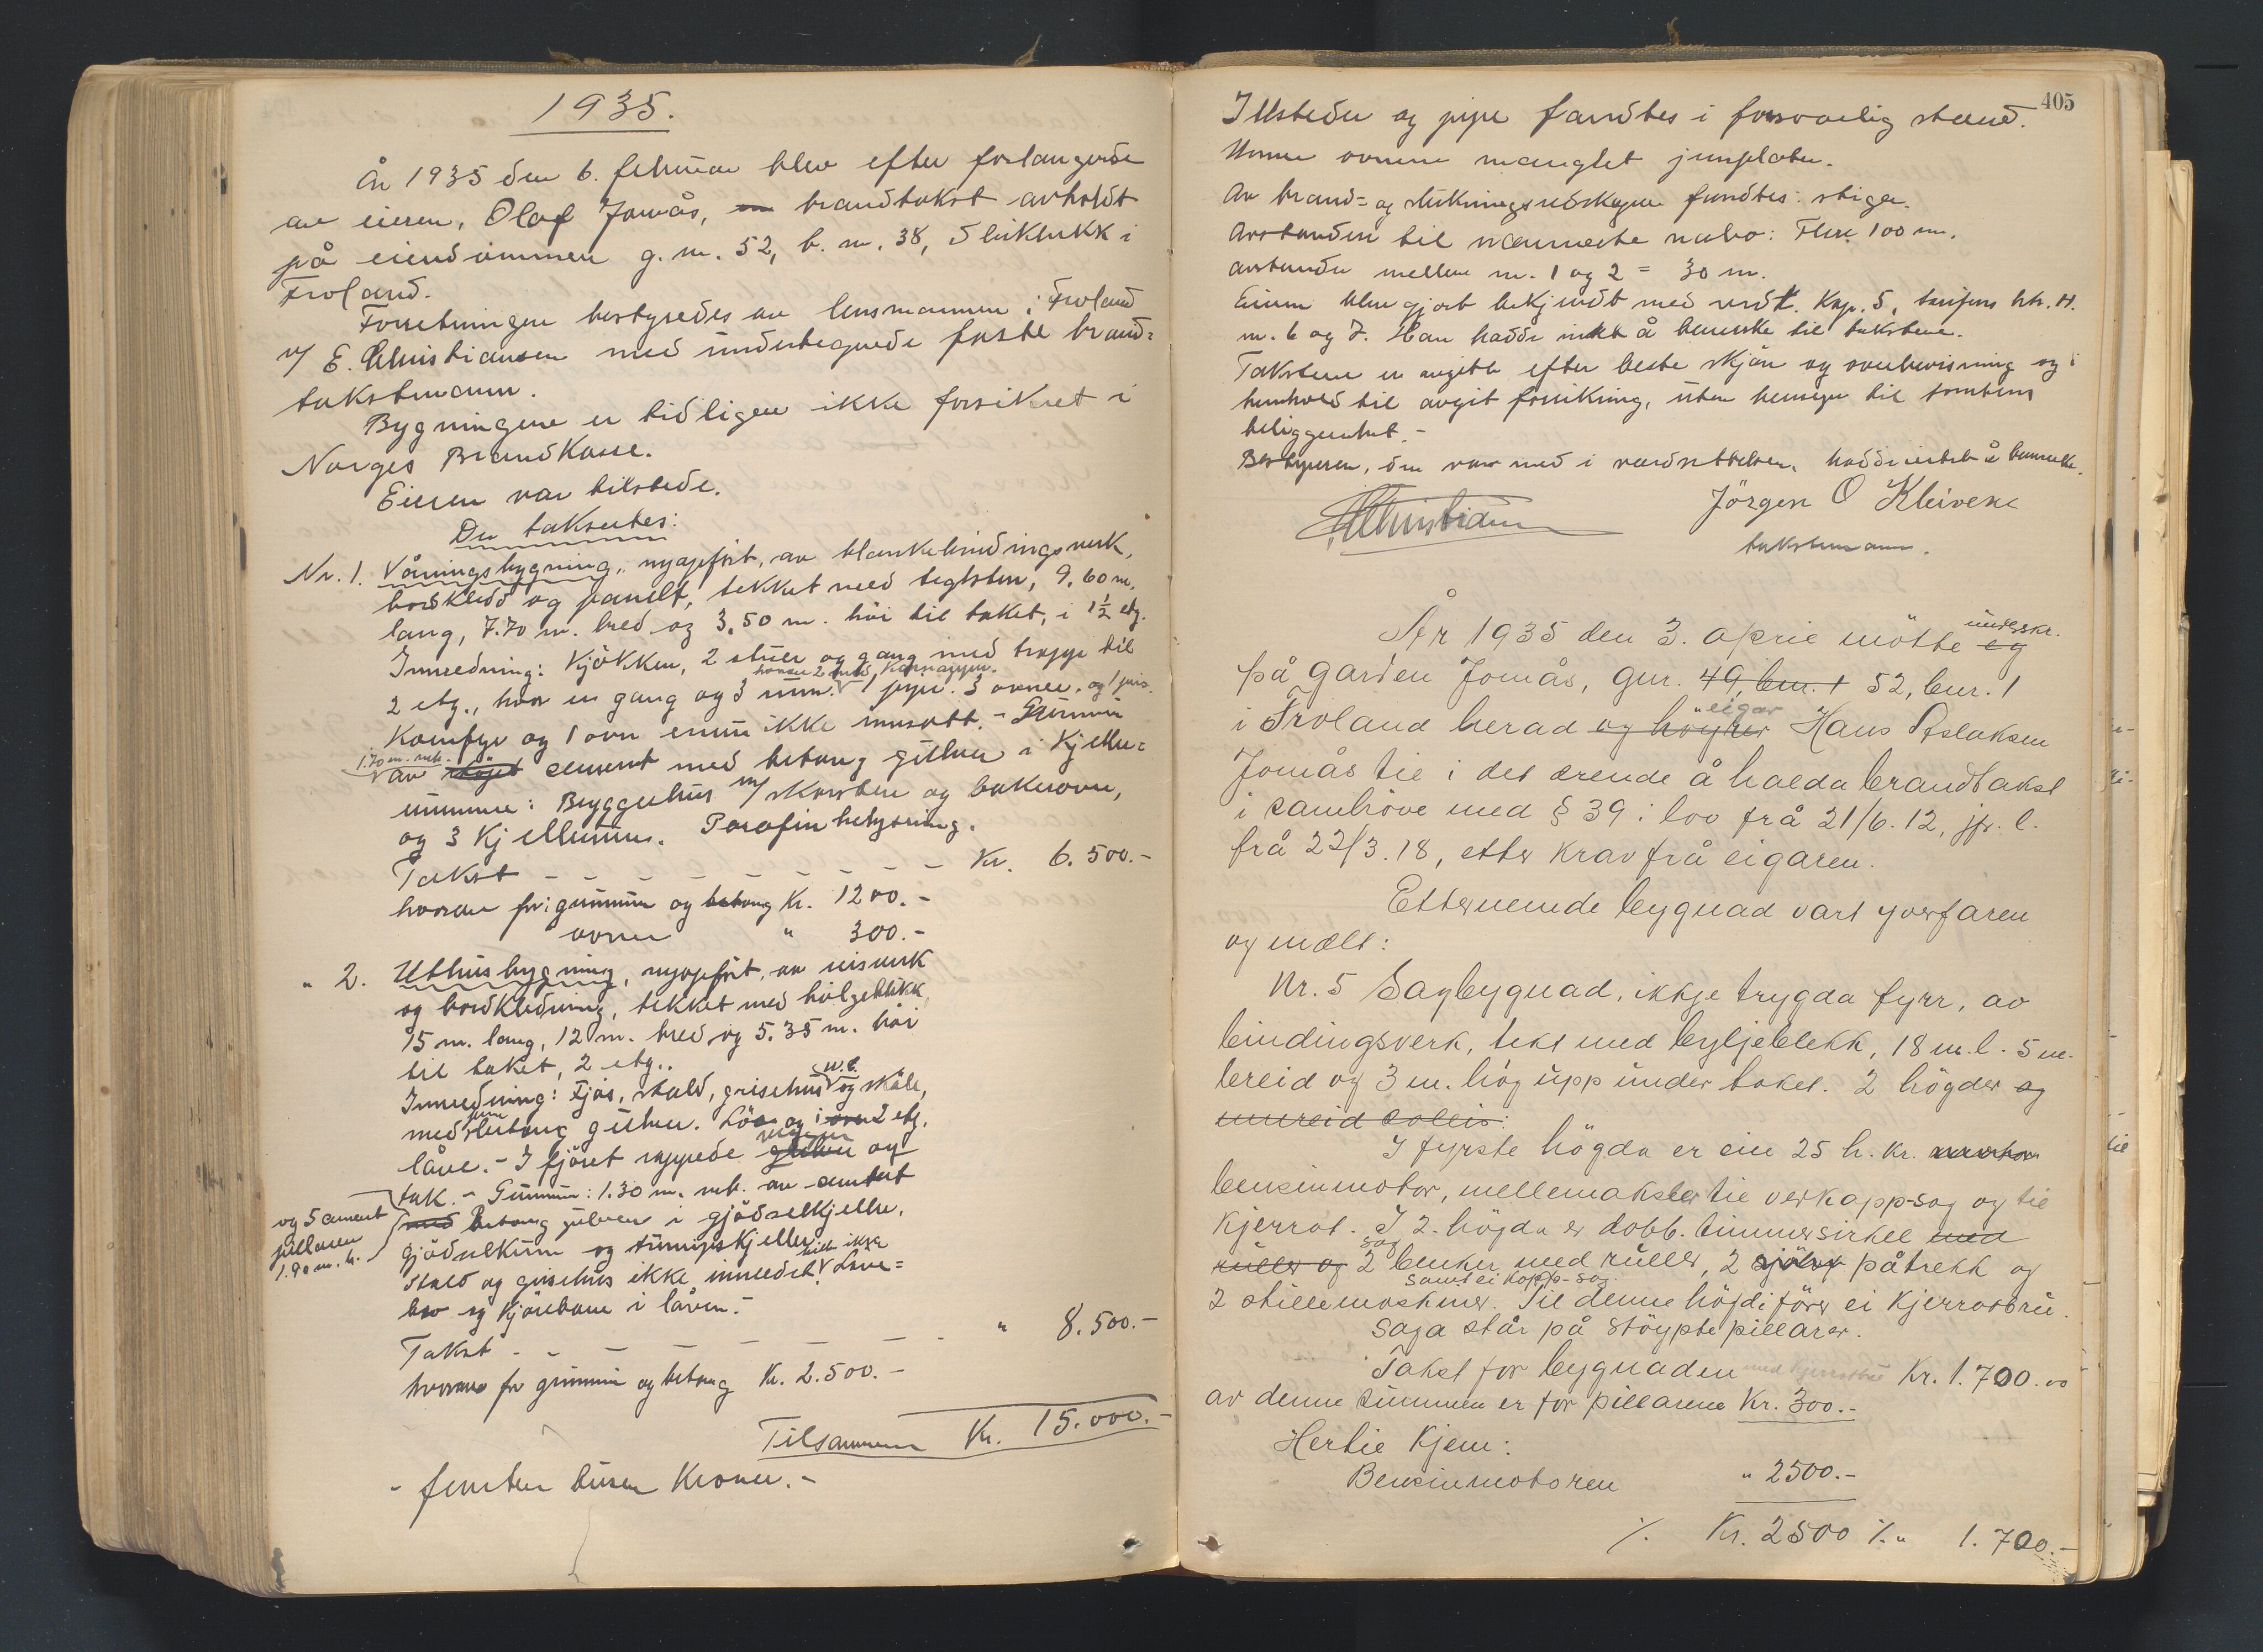 1935.
År 1935 den 6. februar blev efter forlangende
av eieren, Olaf Jomås, brandtakst avholdt
på eiendommen g. nr. 52, b. nr. 38, i
Froland.
Forretningen bestyredes av lensmannen i Froland
v/ E. Christiansen med undertegnede faste brand=
takstmann.
Bygningene er tidligere ikke forsikret i
Norges Brandkasse.
Eieren var tilstede.
Der takseres:
Nr. 1. Våningsbygning, nyopført, av plankebindingsverk,
bordkledd og panelt, tekket med teglsten, 9,60 m.
lang, 7.70 m. bred og 3,50 m. høi til taket, i 1½ etg.
Innredning: Kjøkken, 2 stuer og gang med trappe til
2 etg., hvor en gang og 3 rum. hvorav 2 med 1 pipe. 3 ovner, og 1
Komfyr og 1 ovn ennu ikke innsatt. - Grunnmur
1.70 m. av cement med betong gulver i Kjeller=
rummene: Bryggerhus m/ skorsten og bakerovn,
og 3 Kjellerrum. Parafin belysning.
Takst - - - - - - - - - Kr. 6.500.-
hvorav for: grunnmur og betong Kr. 1200.-
ovner " 300.-
" 2. Uthusbygning, nyopført, av reisverk
og bordkledning, tekket med bølgeblikk
15 m. lang, 12 m. bred og 5.35 m. høi
til taket, 2 etg..
Innredning: Fjøs, stald, grisehus w.c. og skåle,
med betong gulver. Løe og i 2 etg.
låve. - I fjøset rappede vegger og
tak. - Grunnmur: 1.30 m. av cement
og 5 cement
pillarer
1.90 m. h.
med betong gulver i gjødselkjeller,
gjødselkum og turnipskjeller
Stald og grisehus ikke innredet. Låve=
bro og kjørebane i låven. -
Takst - - - - - - " 8.500.-
hvorav for grunnmur og betong Kr. 2.500.-
Tilsammen Kr. 15.000.-
- femten tusen Kroner. -
405
Ildsteder og pipe fandtes i forsvarlig stand.
ovnene manglet jernplater.
Av brand= og slukningsredskaper fandtes: stiger.
Avstanden til nærmeste nabo: Flere 100 m.
avstanden mellem nr. 1 og 2 = 30 m.
Eieren blev gjort bekjendt med Kap. 5, tarifens litr. H.
nr. 6 og 7. Han hadde intet å bemerke til taksten.
Taksten er avgitt efter beste skjøn og overbevisning og i
henhold til avgit forsikring, uten hensyn til tomtens
beliggenhet. -
Bestyreren, som var med i verdsettelsen, hadde intet å bemerke.
E. Christiansen Jörgen O Kleivene
takstmann.
År 1935 den 3. april mötte underskr. eg
på garden Jomås, gnr. 49, bnr. 1 52, bnr. 1
i Froland herad og höyrer eigar Hans Aslaksen
Jomås til i det ærende å halda brandtakst
i samhöve med § 39 i lov frå 21/6. 12, jfr. l.
frå 22/3. 18, etter krav frå eigaren.
Etternemde bygnad vart yverfaren
og mælt:
Nr. 5 Sagbygnad, ikkje trygda fyrr, av
bindingsverk, tekt med bylgjeblekk, 18 m. l. 5 m.
breid og 3 m. hög upp under taket. 2 högder og
innreid soleis:
I fyrste högda er ein 25 h. kr.
bensinmotor, mellemaksler til verkapp-sag og til
Kjerrat. I 2. högda er dobb. timmersirkel med
ruller og 2 sag benker med ruller, 2 sjölv påtrekk og
2 stillemaskiner. samt ei kapp-sag. Til denne högdi förer ei Kjerratbru.
Saga står på stöypte pillarar.
Takst for bygnaden med kjerratbru Kr. 1.700.00
av denne summen er for pillarene Kr. 300.-
Hertil kjem:
Bensinmotoren " 2500.-
% Kr. 2500 %. " 1.700.-